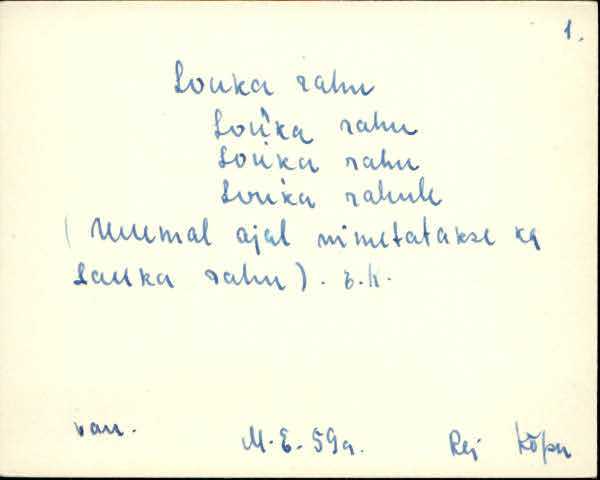 1.
Louka rahu
Lou'ka rahu
Lou'ka rahu
Lou'ka rahule
(Uuemal ajal nimetatakse ka
Lauka rahu). s.k.
van.
M.E. 59a.
Rei Kõpu